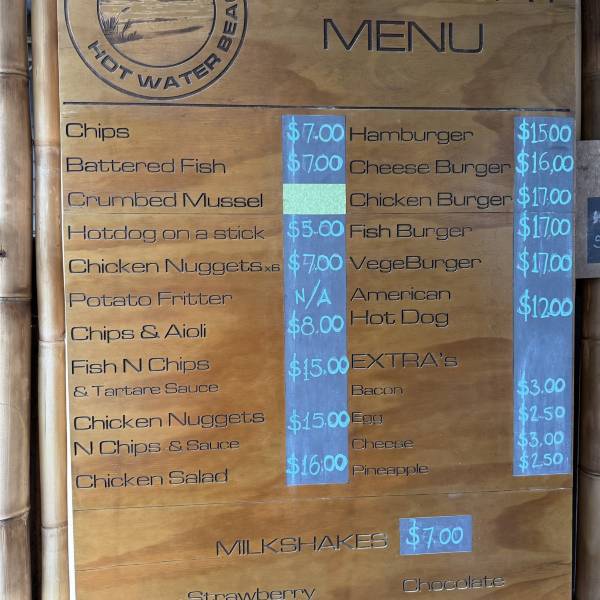 MENU
HOT WATER BEA
Chips $7.00
Battered Fish $7.00
Crumbed Mussel
Hotdog on a stick $5.00
Chicken Nuggets x6 $7.00
Potato Fritter N/A
Chips & Aioli $8.00
Fish N Chips $15.00
& Tartare Sauce
Chicken Nuggets $15.00
N Chips & Sauce
Chicken Salad $16.00
Hamburger $1500
Cheese Burger $16,00
Chicken Burger $17.00
Fish Burger $1700
VegeBurger $17.00
American
Hot Dog $1200
EXTRA's
Bacon $3.00
Egg $2.50
Cheese $3.00
Pineapple $2.50
MILKSHAKES $7.00
Strawberry Chocolate